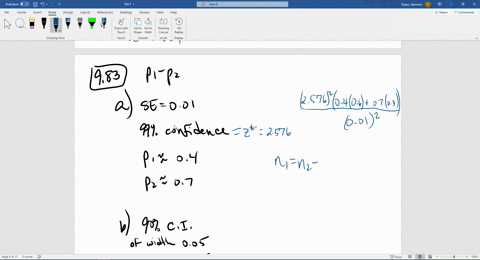 9.83 P1-P2
a) SE = 0.01
99% confidence = z* = 2.576
P1 ≈ 0.4
P2 ≈ 0.7
(2.576)²(0.4(0.6)+0.7(0.3)
(0.01)²
n1 = n2 =
b) 90% C.I.
of width 0.05